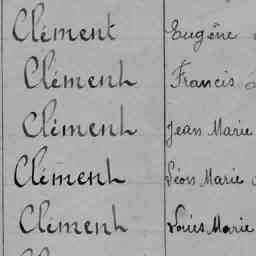 Clément Eugène
Clément Francis
Clément Jean Marie
Clément Léon Marie
Clément Louis Marie